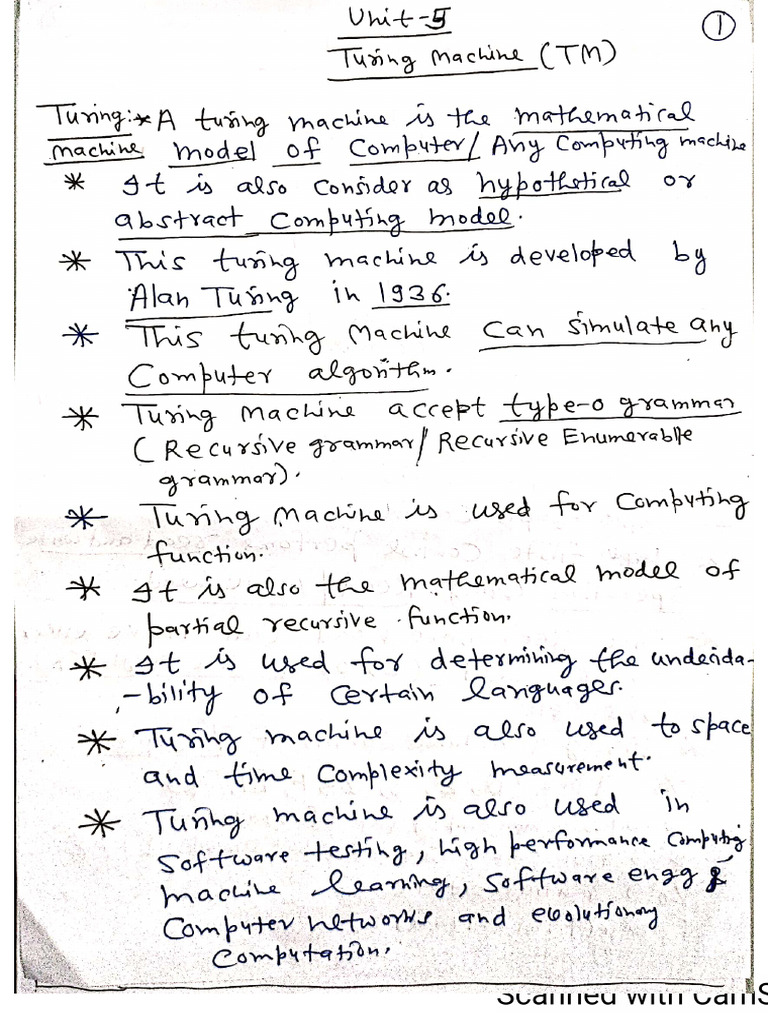 Unit-5
①
Turing Machine (TM)
Turing:* A turing machine is the mathematical
machine model of Computer/ Any Computing machine
* It is also Consider as hypothetical or
abstract Computing model.
* This turing machine is developed by
Alan Turing in 1936.
* This turing Machine Can simulate any
Computer algorithm.
* Turing Machine accept type-0 grammar
(Recursive grammar/ Recursive Enumerable
grammar).
* Turing Machine is used for Computing
function.
* It is also the mathematical model of
partial recursive function.
* It is used for determining the undeida-
-bility of Certain languages.
* Turing machine is also used to space
and time Complexity measurement.
* Turing machine is also used in
Software testing, high performance Computing
machine learning, Software engg &
Computer networks and evolutionary
Computation.
Scanned with CamS